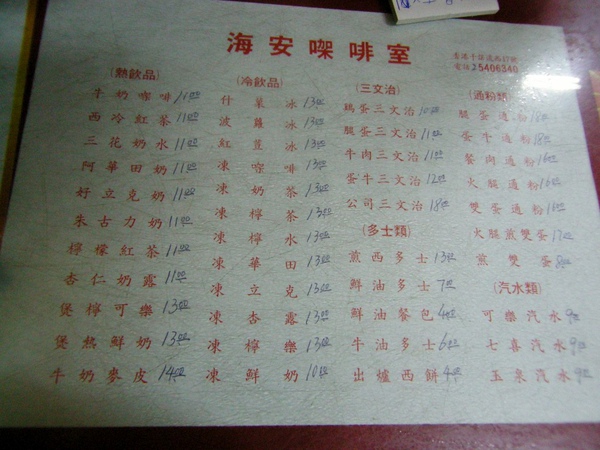 海安㗎啡室
香港干諾道西17號
電話：5406340
（熱飲品）
牛奶㗎啡 11元
西冷紅茶 11元
三花奶水 11元
阿華田奶 11元
好立克奶 11元
朱古力奶 11元
檸檬紅茶 11元
杏仁奶露 11元
煲檸可樂 13元
煲熱鮮奶 13元
牛奶麥皮 14元
（冷飲品）
什菓冰 13元
波蘿冰 13元
紅荳冰 13元
凍㗎啡 13元
凍奶茶 13元
凍檸茶 13元
凍檸水 13元
凍華田 13元
凍立克 13元
凍杏露 13元
凍檸樂 13元
凍鮮奶 10元
（三文治）
鷄蛋三文治 10元
腿蛋三文治 11元
牛肉三文治 11元
蛋牛三文治 12元
公司三文治 18元
（多士類）
煎西多士 13元
鮮油多士 7元
鮮油餐包 4元
牛油多士 6元
出爐西餅 4元
（通粉類）
腿蛋通粉 18元
蛋牛通粉 18元
餐肉通粉 16元
火腿通粉 16元
雙蛋通粉 18元
火腿煎雙蛋 17元
煎雙蛋 8元
（汽水類）
可樂汽水 9元
七喜汽水 9元
玉泉汽水 9元